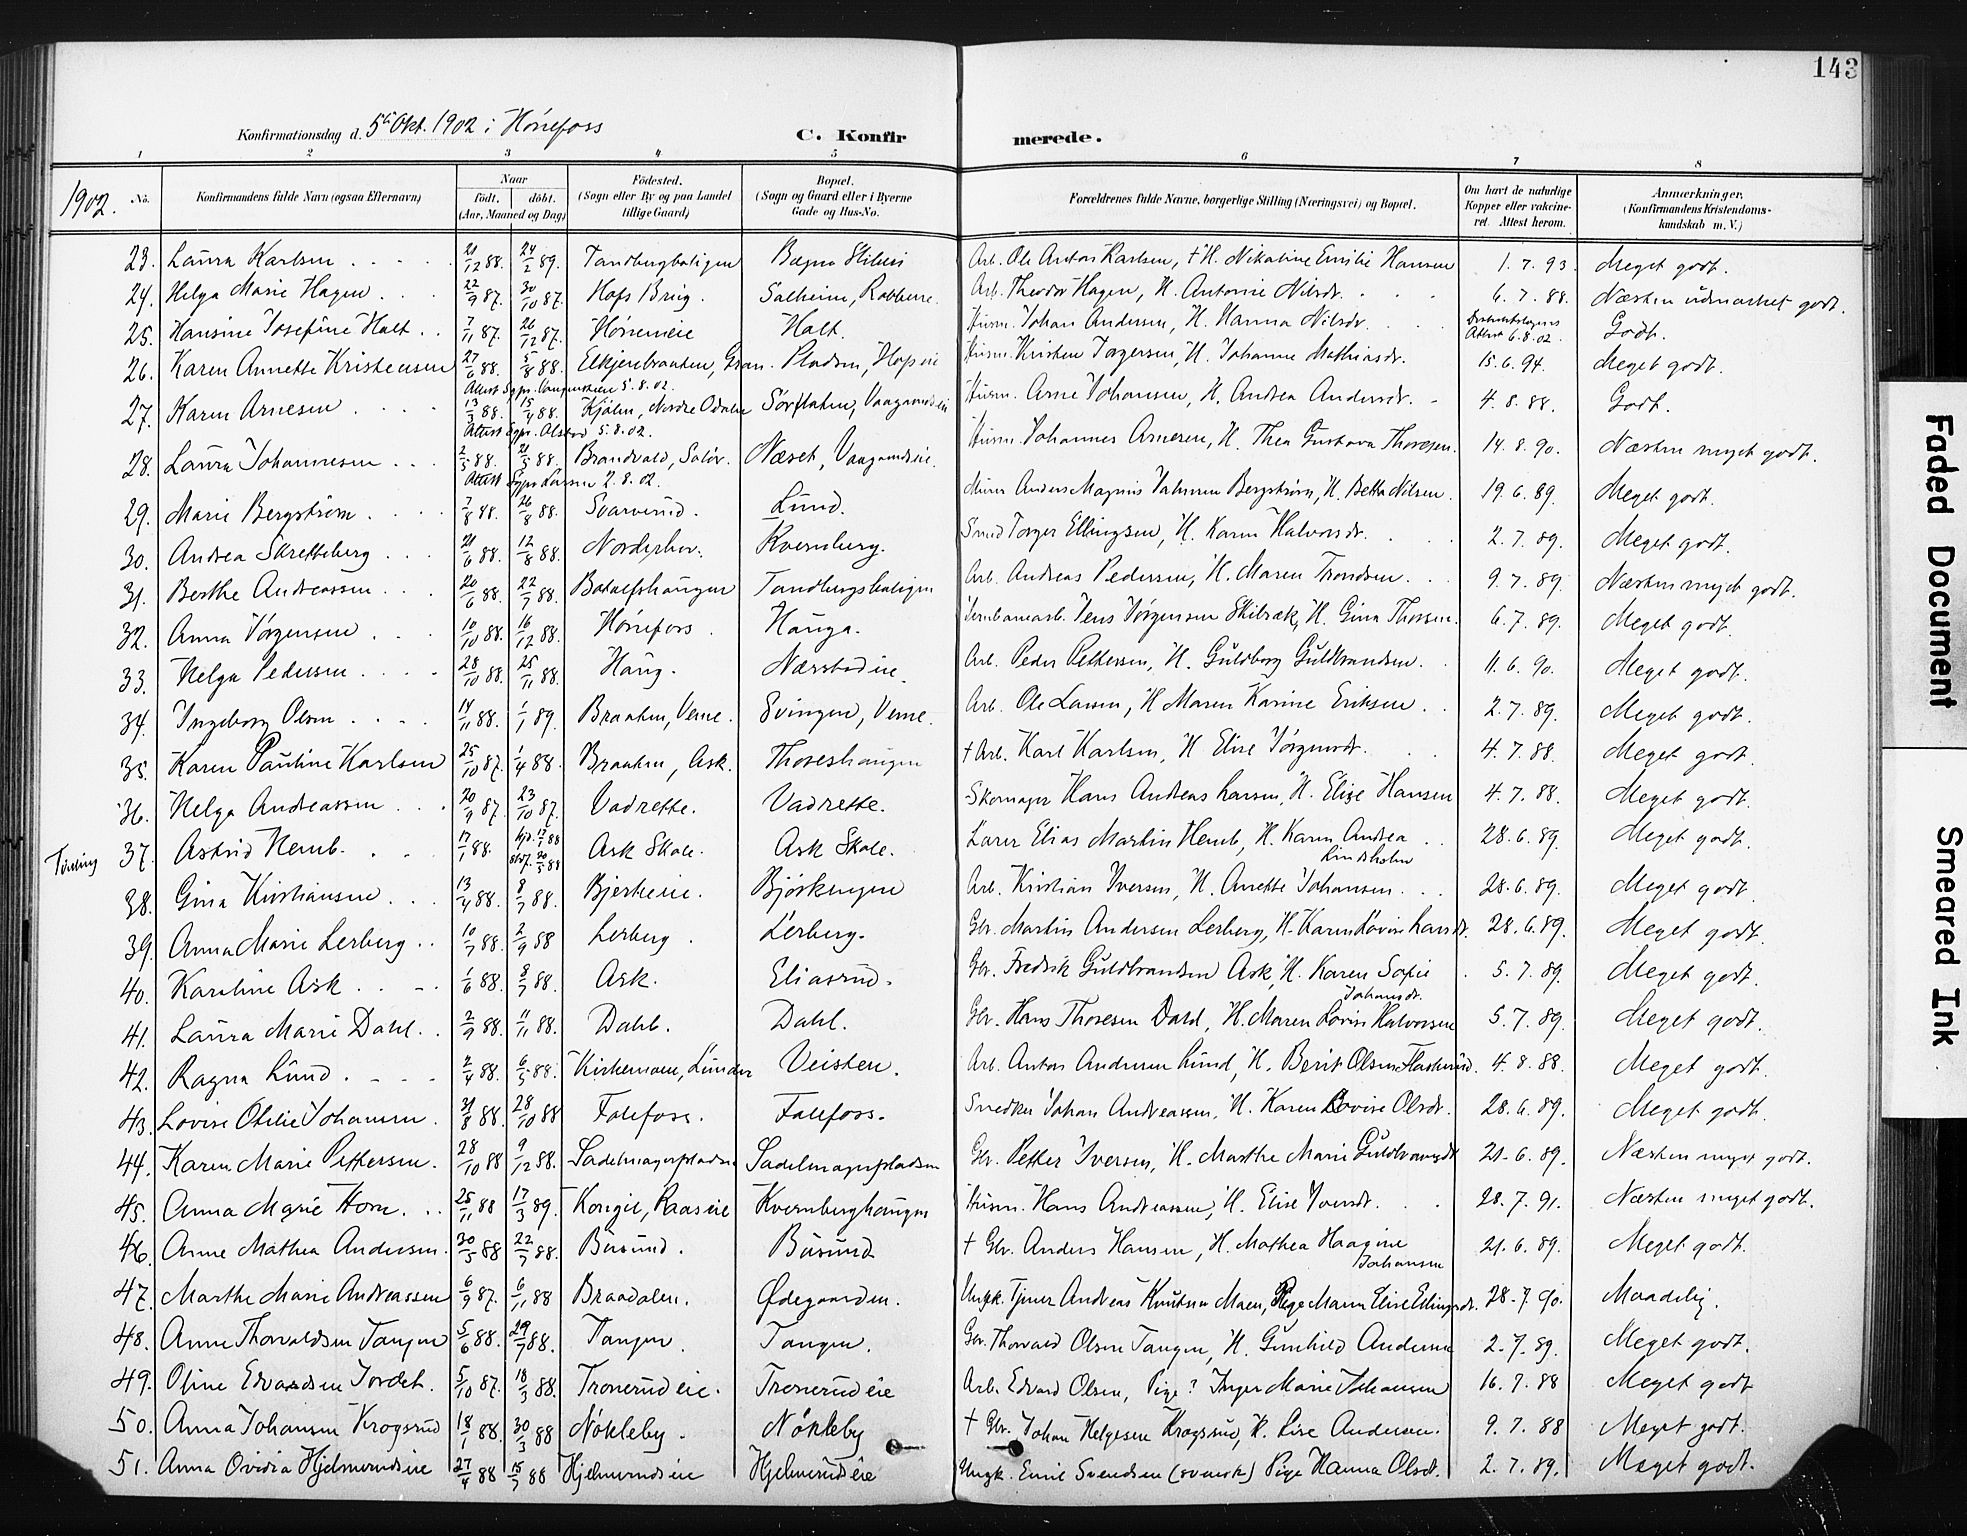 143
Konfirmationsdag d. 5te Okt. 1902 i Hönefoss
C. Konfirmerede.
1 2 3 4 5 6 7 8
1902. No. Konfirmandens fulde Navn (ogsaa Efternavn) Naar födt. döbt. (Aar, Maaned og Dag) Födested. (Sogn eller By og paa Landet tillige Gaard) Bopæl. (Sogn og Gaard eller i Byerne Gade og Hus-No.) Forældrenes fulde Navne, borgerlige Stilling (Næringsvei) og Bopæl. Om havt de naturlige Kopper eller vakcineret. Attest herom. Anmærkninger. (Konfirmandens Kristendomskundskab m. V.)
23. Laura Karlsen 21/12 88. 24/2 89. Tandbergboligen Arb. Ole Anton Karlsen, † H. Nikoline Emilie Hansen 1.7.93. Meget godt.
24. Helga Marie Hagen 22/9 87. 30/10 87. Hofs Brug. Solheim, Arb. Theodor Hagen, H. Antonie Nilsdr. 6.7.88. Næsten udmærket godt.
25. Hansine Josefine Holt 7/11 87. 26/12 87. Höneneie Holt. Husm. Johan Andersen, H. Hanna Nilsdr. Attest 6.8.02. Godt.
26. Karen Annette Kristensen 27/6 88. 5/8 88. Elkjærbraaten, Gran. Pladsen, Hofseie Husm. Kristen Torgersen, H. Johanne Mathiasdr. 15.6.94. Meget godt.
Attest Sgpr. 5.8.02.
27. Karen Arnesen 13/3 88. 15/4 88. Kjölen, Nordre Odalen Sörflaten, Husm. Arne Johansen, H. Andrea Andersdr. 4.8.88. Godt.
Attest Sgpr. 5.8.02.
28. Laura Johannesen 2/5 88. 21/5 88. Brandvold, Solör. Næset, Husm. Johannes Arnesen, H. Thea Gustava Thoresen. 14.8.90. Næsten meget godt.
Attest Sgpr. Larsen 2.8.02.
29. Marie Bergström 7/8 88. 26/8 88. Svarverud. Lund. Murer Anders Magnus Bergström, H. Betha Nilsen. 19.6.89. Meget godt.
30. Andrea Skretteberg 21/6 88. 12/8 88. Norderhov. Kvernberg. Smed Torger Ellingsen, H. Karen Halvorsdr. 2.7.89. Meget godt.
31. Berthe Andreassen 20/6 88. 22/7 88. Botolfshaugen Tandbergboligen Arb. Andreas Pedersen, H. Maren Trondsen. 9.7.89. Næsten meget godt.
32. Anna Jörgensen 10/10 88. 16/12 88. Hönefoss. Hauga. Jernbanearb. Jens Jörgensen Skibræk, H. Gina Thorsen. 6.7.89. Meget godt.
33. Helga Pedersen 28/10 88. 25/11 88. Haug. Næsstadeie. Arb. Peder Pettersen, H. Guldborg Guldbrandsen. 11.6.90. Meget godt.
34. Ingeborg Olsen 14/11 88. 1/1 89. Braaten, Veme. Svingen, Veme. Arb. Ole Larsen, H. Maren Karine Eriksen 2.7.89. Meget godt.
35. Karen Pauline Karlsen 25/10 87. 1/4 88. Braaten, Ask. Thoreshaugen † Arb. Karl Karlsen, H. Elise Jörgensdr. 4.7.88. Meget godt.
36. Helga Andreassen 20/9 87. 23/10 87. Vadrette. Vadrette. Skomager Hans Andreas Larsen, H. Elise Hansen 4.7.88. Meget godt.
37. Astrid Hemb. 17/1 88. Hjd. 17/1 88 20/5 88 Ask Skole. Ask Skole. Lærer Elias Martin Hemb, H. Karen Andrea Lindholm 28.6.89. Meget godt.
38. Gina Kristiansen 13/4 88. 8/7 88. Bjerkeeie. Bjørkengen Arb. Kristian Iversen, H. Anette Johansen 28.6.89. Meget godt.
39. Anna Marie Lerberg 10/7 88. 2/9 88 Lerberg. Lerberg. Gbr. Martin Andersen Lerberg, H. Karen Lovise Larsdr. 28.6.89. Meget godt.
40. Karoline Ask 1/6 88. 8/7 88. Ask. Eliasrud. Gbr. Fredrik Guldbrandsen Ask, H. Karen Sofie Johansdr. 5.7.89. Meget godt.
41. Laura Marie Dahl. 2/9 88. 11/11 88. Dahl. Dahl. Gbr. Hans Thoresen Dahl, H. Maren Lovise Halvorsen 5.7.89. Meget godt.
42. Ragna Lund. 2/4 88. 6/5 88. Kirkemoen, Lunder Veisten. Arb. Anton Andersen Lund, H. Berit Olsen 4.8.88. Meget godt.
43. Lovise Otilie Johansen. 31/8 88. 28/10 88 Folefoss. Folefoss. Snedker Johan Andreassen, H. Karen Lovise Olsdr. 28.6.89. Meget godt.
44. Karen Marie Pettersen. 28/10 88 9/12 88. Sadelmagerpladsen Sadelmagerpladsen Gbr. Petter Iversen, H. Marthe Marie Guldbrandsdr. 21-6.89. Næsten meget godt.
45. Anna Marie Horn. 25/11 88 17/3 89. Kongie, Raaseie Kvernberghaugen Husm. Hans Andreassen, H. Elise Iversdr. 28.7.91. Næsten meget godt.
46. Anne Mathea Andersen. 30/5 88 22/7 88. Busund. Busund † Gbr. Anders Hansen, H. Mathea Haagine Johansen 21.6.89. Meget godt.
47. Marthe Marie Andreassen 6/9 87. 6/11 88 Braadalen. Ødegaarden. Ungk. Tjener Andreas Knutsen Moen, Pige Maren Elise Ellingsdr. 28.7.90. Maadelig.
48. Anne Thorvaldsen Tangen 5/6 88. 29/7 88. Tangen. Tangen. Gbr. Thorvald Olsen Tangen, H. Gunhild Andersen 2.7.89. Meget godt.
49. Oline Edvardsen Jordet. 5/10 87. 18/3 88. Tronerudeie. Tronerudeie Arb. Edvard Olsen, Pige? Inger Marie Johansen 16.7.88 Meget godt
50. Anna Johansen Krogsrud 18/1 88. 30/3 88 Nökleby. Nökleby † Gbr. Johan Helgesen Krogsrud, H. Lise Andersen. 9.7.88 Meget godt.
51. Anna Ovidia Hjelmerudseie 27/4 88 15/7 88 Hjelmerudseie Hjelmerudseie Ungk. Emil Svendsen (svensk) Pige Hanna Olsdt. 2.7.89. Meget godt.
Faded Document
Smeared Ink